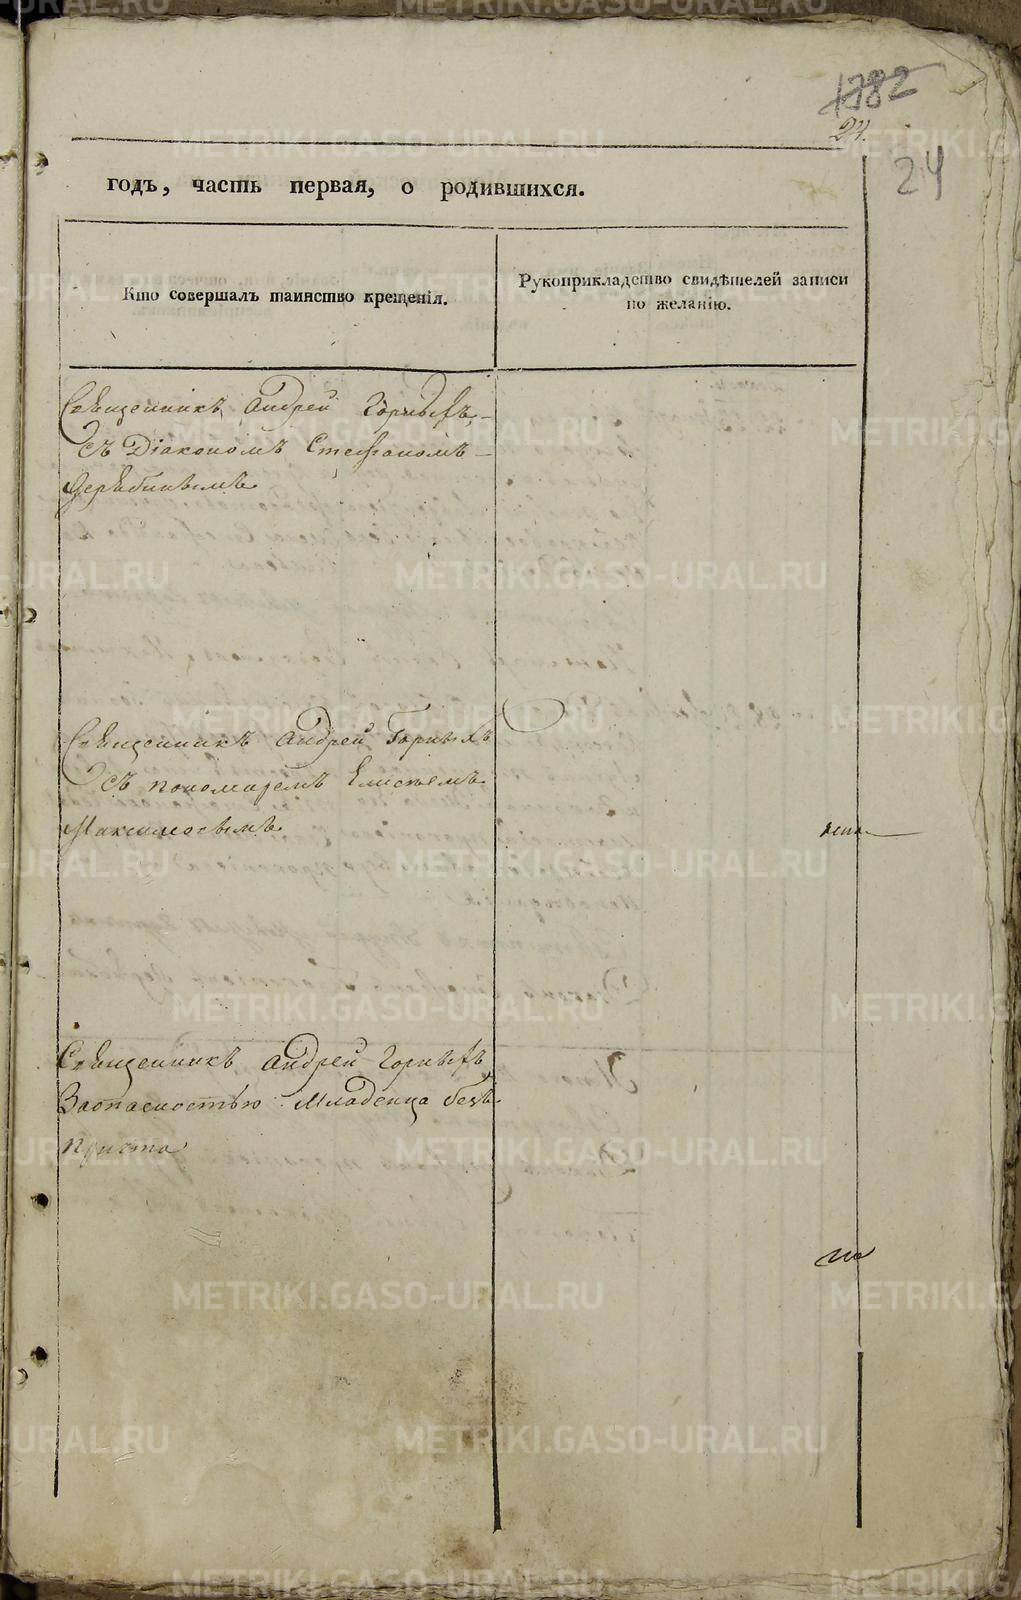 1782
24.
24
годъ, часть первая, о родившихся.
Кто совершалъ таинство крещенія.
Рукоприкладство свидѣтелей записи
по желанію.
Священникъ Андрей Горныхъ
съ Діакономъ Стефаномъ
Дерябинымъ
Священникъ Андрей Горныхъ
съ пономаремъ Елисѣемъ
Максимовымъ
Священникъ Андрей Горныхъ
Заопасностью Младенца безъ
причта
METRIKI.GASO-URAL.RU